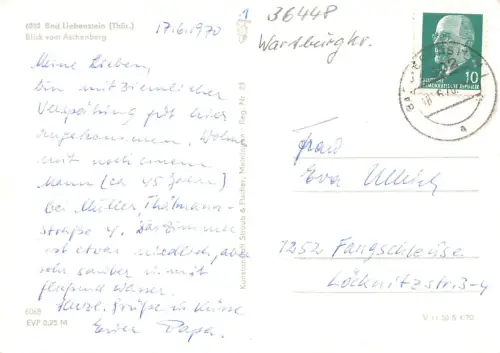 6203 Bad Liebenstein (Thür.)
Blick vom Aschenberg
17.6.1970
Meine Lieben,
bin mit ziemlicher
Verspätung gut hier
angekommen. Wohne
mit noch einem
Mann (ca 45 Jahre)
bei Müller, Thälmann-
straße 4. Das Zimmer
ist etwas niedlich, aber
sehr sauber u. mit
fließend Wasser.
Herzl. Grüße u. Küsse
Euer Papa.
6068
EVP 0,25 M
Kunstanstalt Straub & Fischer, Meiningen Reg. Nr. 23
1
36448
Wartburgkr.
DEUTSCHE
DEMOKRATISCHE REPUBLIK
10
BAD
a
Frau
Eva Ullrich
1252 Fangschleuse
Löcknitzstr. 3-4
V 11 30 S 4 70